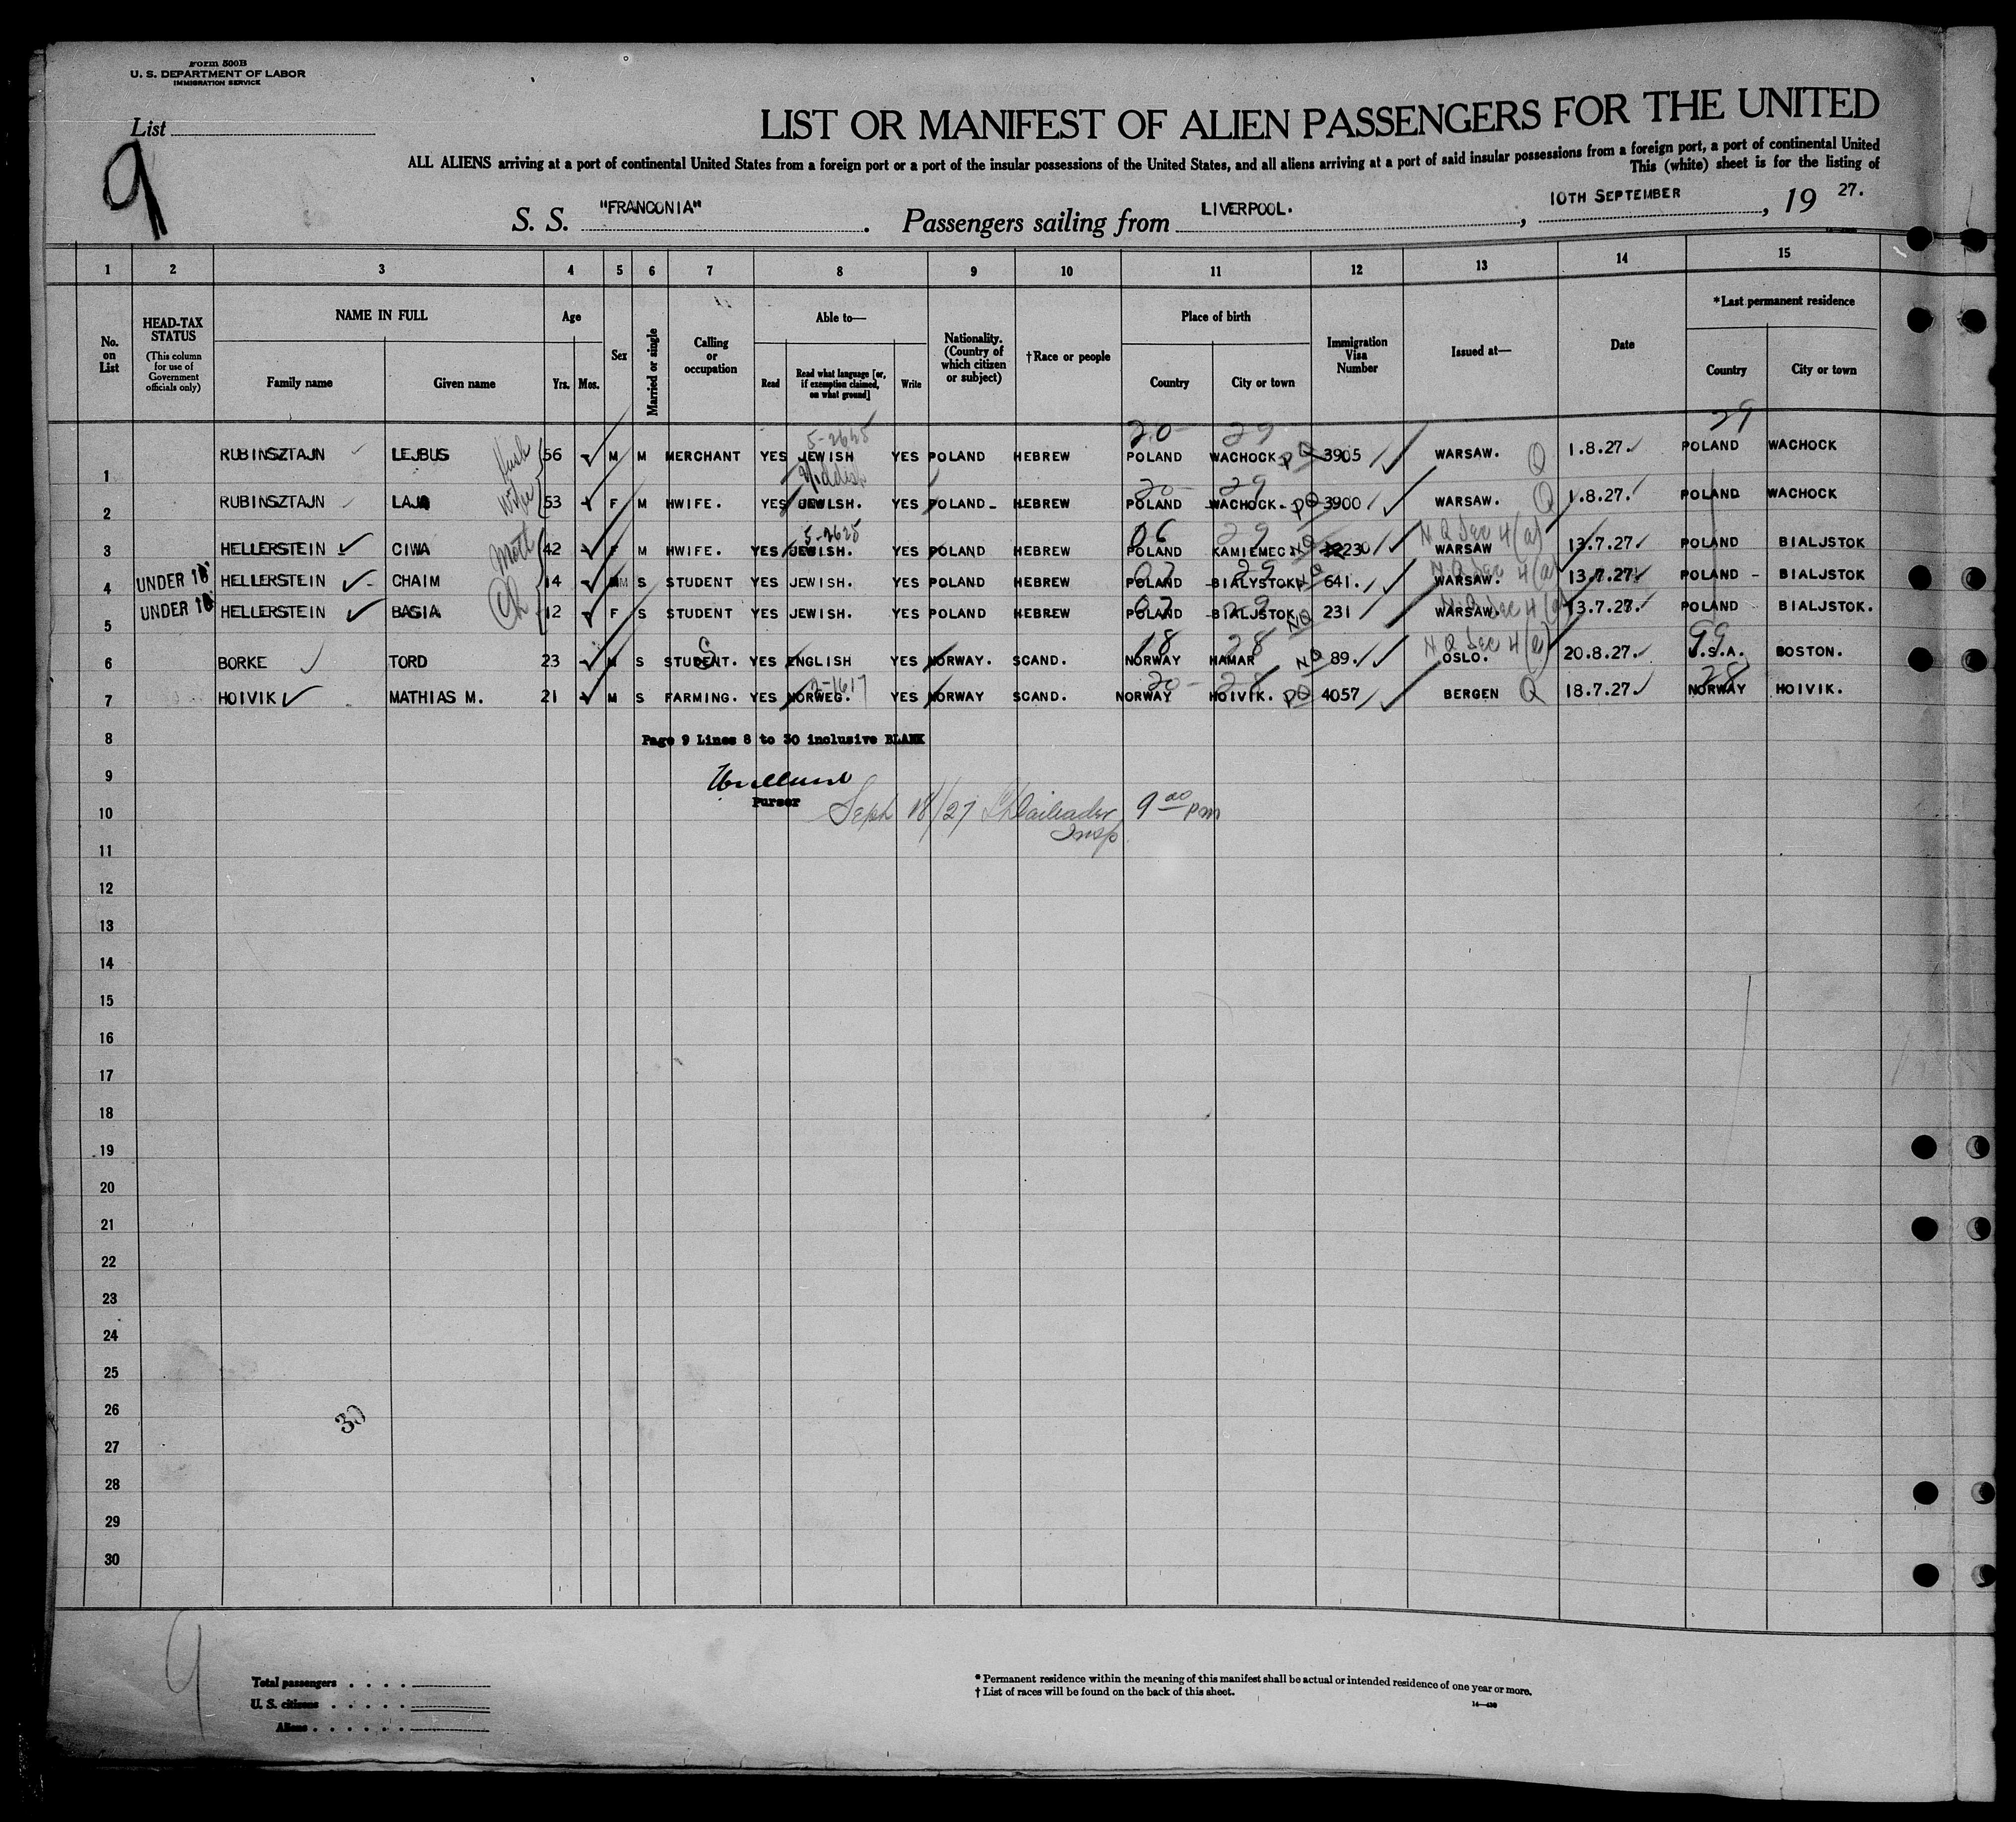 Form 500B
U. S. DEPARTMENT OF LABOR
IMMIGRATION SERVICE
List
9
LIST OR MANIFEST OF ALIEN PASSENGERS FOR THE UNITED
ALL ALIENS arriving at a port of continental United States from a foreign port or a port of the insular possessions of the United States, and all aliens arriving at a port of said insular possessions from a foreign port, a port of continental United
This (white) sheet is for the listing of
S. S. "FRANCONIA". Passengers sailing from LIVERPOOL., 10TH SEPTEMBER, 19 27.
1 2 3 4 5 6 7 8 9 10 11 12 13 14 15
No. on List
HEAD-TAX STATUS
(This column for use of Government officials only)
NAME IN FULL
Family name Given name
Age
Yrs. Mos.
Sex
Married or single
Calling or occupation
Able to—
Read
Read what language [or, if exemption claimed, on what ground]
Write
Nationality. (Country of which citizen or subject)
†Race or people
Place of birth
Country City or town
Immigration Visa Number
Issued at—
Date
*Last permanent residence
Country City or town
5-2625 20- 29 29
1 RUBINSZTAJN LEJBUS Husb 56 M M MERCHANT YES JEWISH YES POLAND HEBREW POLAND WACHOCK PQ 3905 WARSAW. Q 1.8.27. POLAND WACHOCK
Yiddish 20- 29
2 RUBINSZTAJN LAJA Wife 53 F M HWIFE. YES JEWISH. YES POLAND HEBREW POLAND WACHOCK. PQ 3900 WARSAW. Q 1.8.27. POLAND WACHOCK
5-2625 06 29 N Q Sec 4(a)
3 HELLERSTEIN CIWA Moth 42 F M HWIFE. YES JEWISH. YES POLAND HEBREW POLAND KAMIEMEC NQ 230 WARSAW 13.7.27 POLAND BIALJSTOK
07 29 N Q Sec 4(a)
4 UNDER 16 HELLERSTEIN CHAIM Ch 14 M S STUDENT YES JEWISH. YES POLAND HEBREW POLAND BIALYSTOK NQ 641. WARSAW. 13.7.27. POLAND BIALJSTOK
07 29 Sec 4(a)
5 UNDER 16 HELLERSTEIN BASIA 12 F S STUDENT YES JEWISH. YES POLAND HEBREW POLAND BIALJSTOK NQ 231 WARSAW 13.7.27. POLAND BIALJSTOK.
S 18 28 N Q Sec 4(e) 99
6 BORKE TORD 23 M S STUDENT. YES ENGLISH YES NORWAY. SCAND. NORWAY HAMAR NQ 89. OSLO. 20.8.27. U.S.A. BOSTON.
2-1617 20- 28 28
7 HOIVIK MATHIAS M. 21 M S FARMING. YES NORWEG. YES NORWAY SCAND. NORWAY HOIVIK. PQ 4057 BERGEN Q 18.7.27 NORWAY HOIVIK.
8 Page 9 Lines 8 to 30 inclusive BLANK
9
Purser
10 Sept 18/27 9 00 pm
Insp
11
12
13
14
15
16
17
18
19
20
21
22
23
24
25
26
30
27
28
29
30
9
Total passengers
U. S. citizens
Aliens
* Permanent residence within the meaning of this manifest shall be actual or intended residence of one year or more.
† List of races will be found on the back of this sheet.
14—430